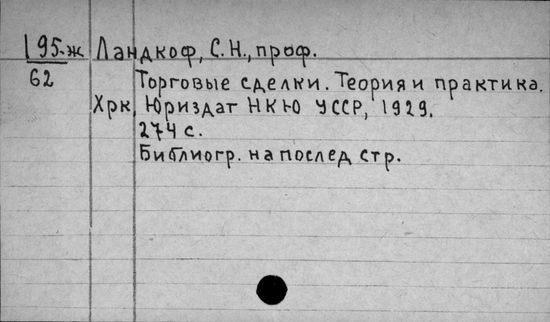 195-ж Ландкоф, С.Н., проф.
62 Торговые сделки. Теория и практика.
Хрк, Юриздат НКЮ УССР, 1929.
274 с.
Библиогр. на послед стр.